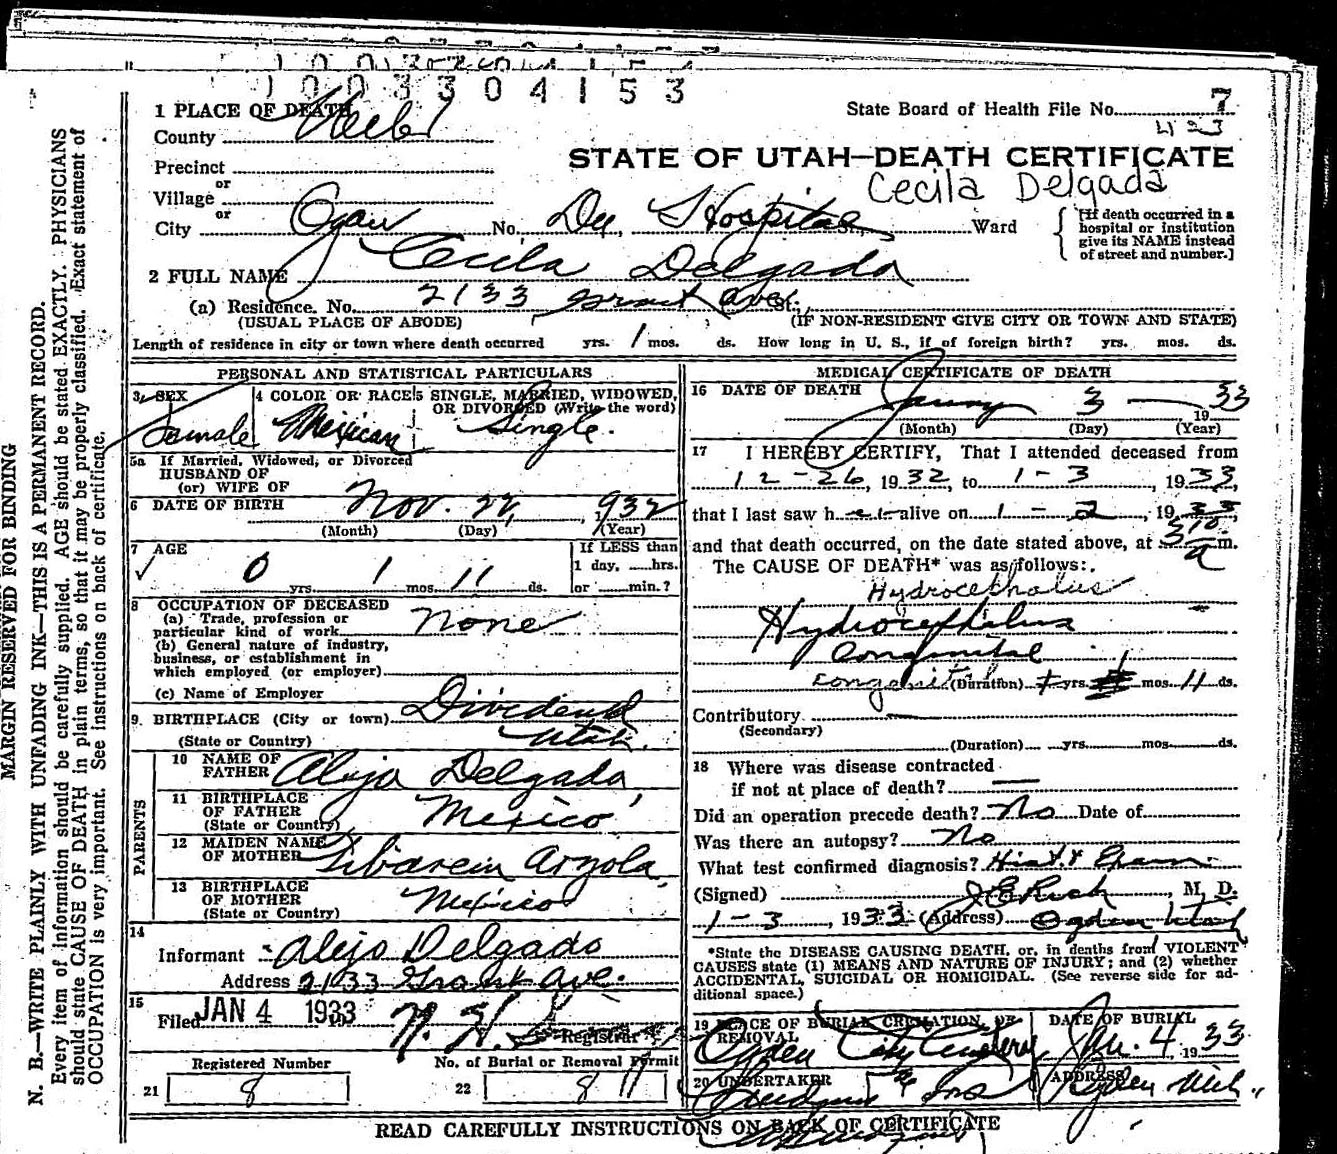 1 0 0 3 3 0 4 1 5 3
1 PLACE OF DEATH
State Board of Health File No. 7
423
County Weber
STATE OF UTAH—DEATH CERTIFICATE
Precinct
Cecila Delgada
or
Village
or
City Ogden No. Dee Hospital Ward
[If death occurred in a
hospital or institution
give its NAME instead
of street and number.]
2 FULL NAME Cecila Delgada
(a) Residence. No. 2133 Grant Ave. St.
(USUAL PLACE OF ABODE) (IF NON-RESIDENT GIVE CITY OR TOWN AND STATE)
Length of residence in city or town where death occurred yrs. 1 mos. ds. How long in U. S., if of foreign birth? yrs. mos. ds.
PERSONAL AND STATISTICAL PARTICULARS
3 SEX 4 COLOR OR RACE 5 SINGLE, MARRIED, WIDOWED,
OR DIVORCED (Write the word)
Female Mexican Single.
5a If Married, Widowed, or Divorced
HUSBAND OF
(or) WIFE OF
6 DATE OF BIRTH Nov. 22, 1932
(Month) (Day) (Year)
7 AGE If LESS than
1 day, hrs.
0 yrs. 1 mos. 11 ds. or min.?
8 OCCUPATION OF DECEASED
(a) Trade, profession or
particular kind of work None
(b) General nature of industry,
business, or establishment in
which employed (or employer)
(c) Name of Employer
9. BIRTHPLACE (City or town) Dividend
(State or Country) Utah.
PARENTS
10 NAME OF
FATHER Alejo Delgada,
11 BIRTHPLACE
OF FATHER
(State or Country) Mexico
12 MAIDEN NAME
OF MOTHER Arzola,
13 BIRTHPLACE
OF MOTHER
(State or Country) Mexico
14
Informant Alejo Delgado
Address 2133 Grant Ave.
15
Filed JAN 4 1933 Registrar
Registered Number No. of Burial or Removal Permit
21 8 22 8
MEDICAL CERTIFICATE OF DEATH
16 DATE OF DEATH
3 — 1933
(Month) (Day) (Year)
17 I HEREBY CERTIFY, That I attended deceased from
12-26, 1932, to 1-3, 1933,
that I last saw her alive on 1-2, 1933,
and that death occurred, on the date stated above, at 5 10 a m.
The CAUSE OF DEATH* was as follows:
Hydrocephalus
Hydrocephalus
Congenital
(Duration) yrs. mos. 11 ds.
Contributory
(Secondary)
(Duration) yrs. mos. ds.
18 Where was disease contracted
if not at place of death? —
Did an operation precede death? No Date of
Was there an autopsy? No
What test confirmed diagnosis? Hist. & Exam.
(Signed) J E Rich, M. D.
1-3, 1933 (Address) Ogden Utah
*State the DISEASE CAUSING DEATH, or, in deaths from VIOLENT
CAUSES state (1) MEANS AND NATURE OF INJURY; and (2) whether
ACCIDENTAL, SUICIDAL OR HOMICIDAL. (See reverse side for ad-
ditional space.)
19 PLACE OF BURIAL, CREMATION, OR
REMOVAL DATE OF BURIAL
Ogden City Cemetery Jan. 4, 1933
20 UNDERTAKER ADDRESS
Ogden Utah
READ CAREFULLY INSTRUCTIONS ON BACK OF CERTIFICATE
MARGIN RESERVED FOR BINDING
N. B.—WRITE PLAINLY WITH UNFADING INK—THIS IS A PERMANENT RECORD.
Every item of information should be carefully supplied. AGE should be stated EXACTLY. PHYSICIANS
should state CAUSE OF DEATH in plain terms, so that it may be properly classified. Exact statement of
OCCUPATION is very important. See instructions on back of certificate.